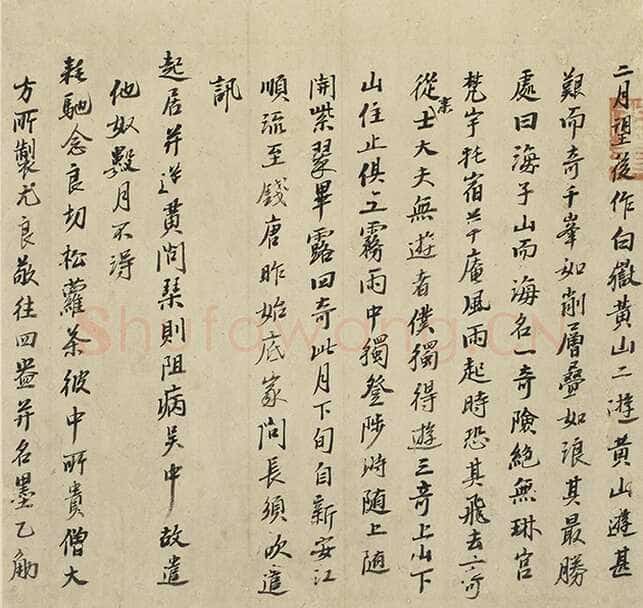 二月望後作白嶽黃山二遊黃山遊甚
艱而奇千峯如削層疊如浪其最勝
處曰海子山而海名一奇險絕無琳宮
梵宇托宿茅庵風雨起時恐其飛去二奇
從來士大夫無遊者僕獨得遊三奇上山下
山住止俱在霧雨中獨登陟時隨上隨
開紫翠畢露四奇此月下旬自新安江
順流至錢唐昨始底家問長須欲遣
訊
起居并送黃問琴則阻病吳中故遣
他奴數月不得
耗馳念良切松蘿茶彼中所貴僧大
方所製尤良敬往四盎并名墨乙觔
Shufawang.CN